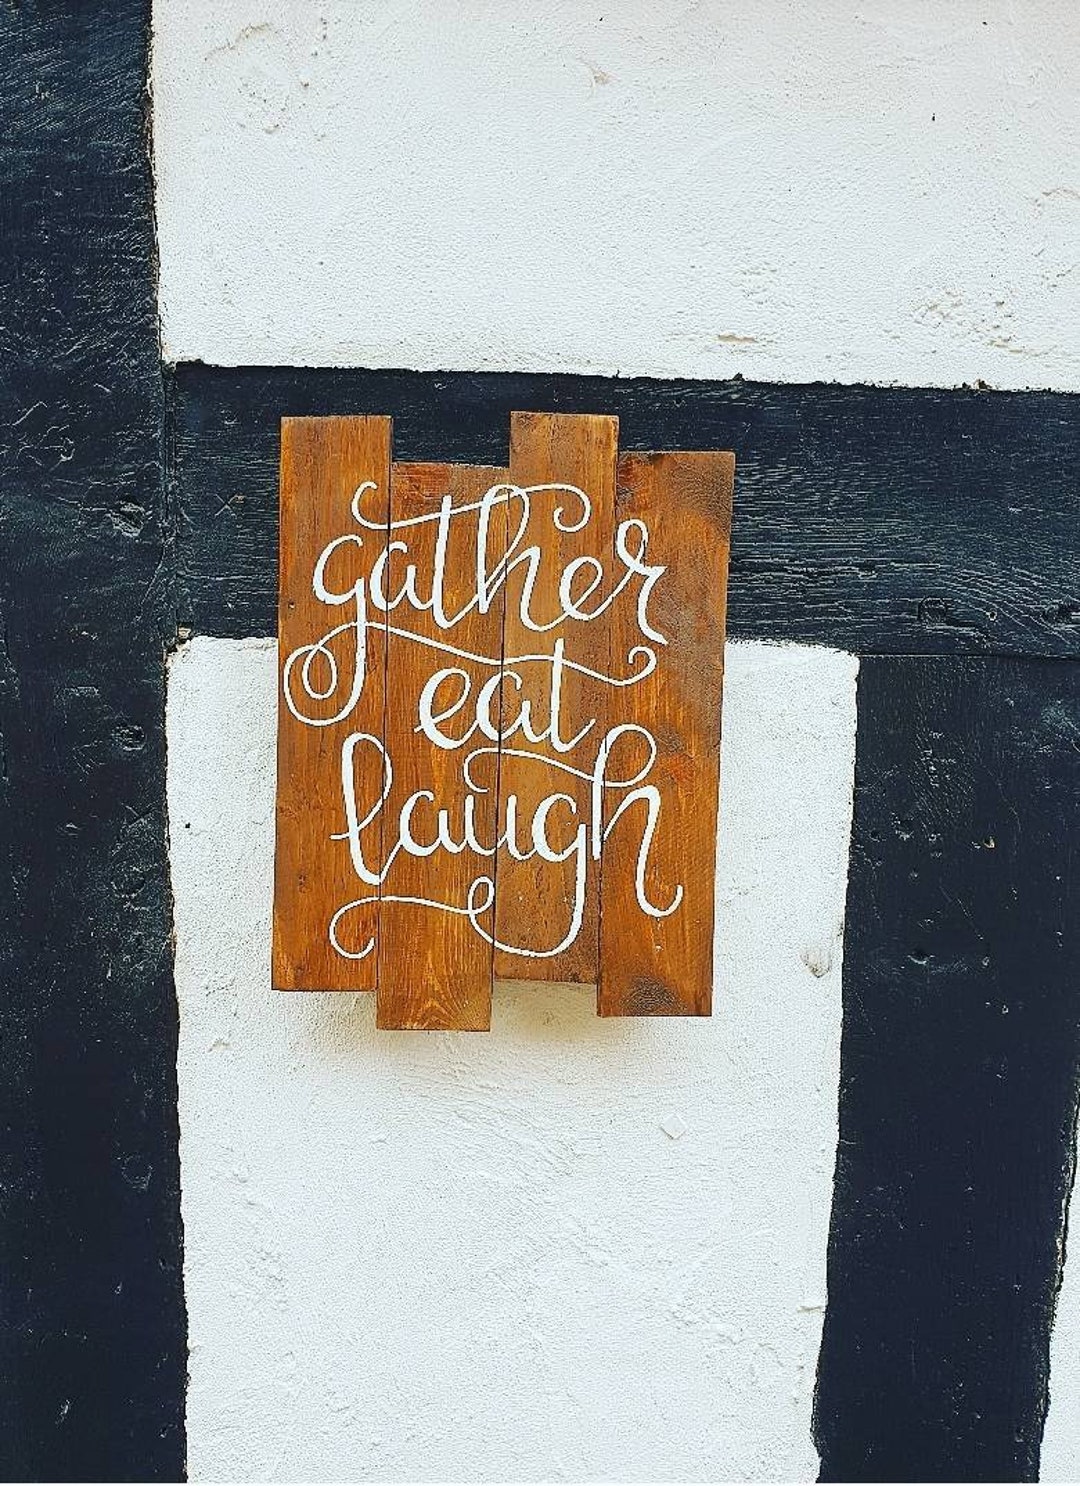 gather
eat
laugh